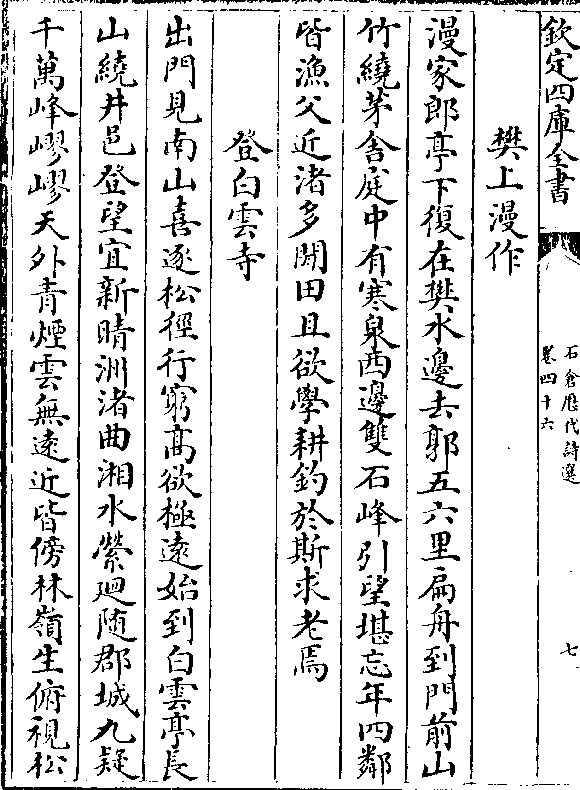 欽定四庫全書
石倉歷代詩選
卷四十六
七
樊上漫作
漫家郎亭下復在樊水邊去郭五六里扁舟到門前山
竹繞茅舍庭中有寒泉西邊雙石峰引望堪忘年四鄰
皆漁父近渚多閒田且欲學耕釣於斯求老焉
登白雲寺
出門見南山喜逐松徑行窮高欲極遠始到白雲亭長
山繞井邑登望宜新晴洲渚曲湘水縈廻随郡城九疑
千萬峰嵺嵺天外青煙雲無遠近皆傍林嶺生俯視松